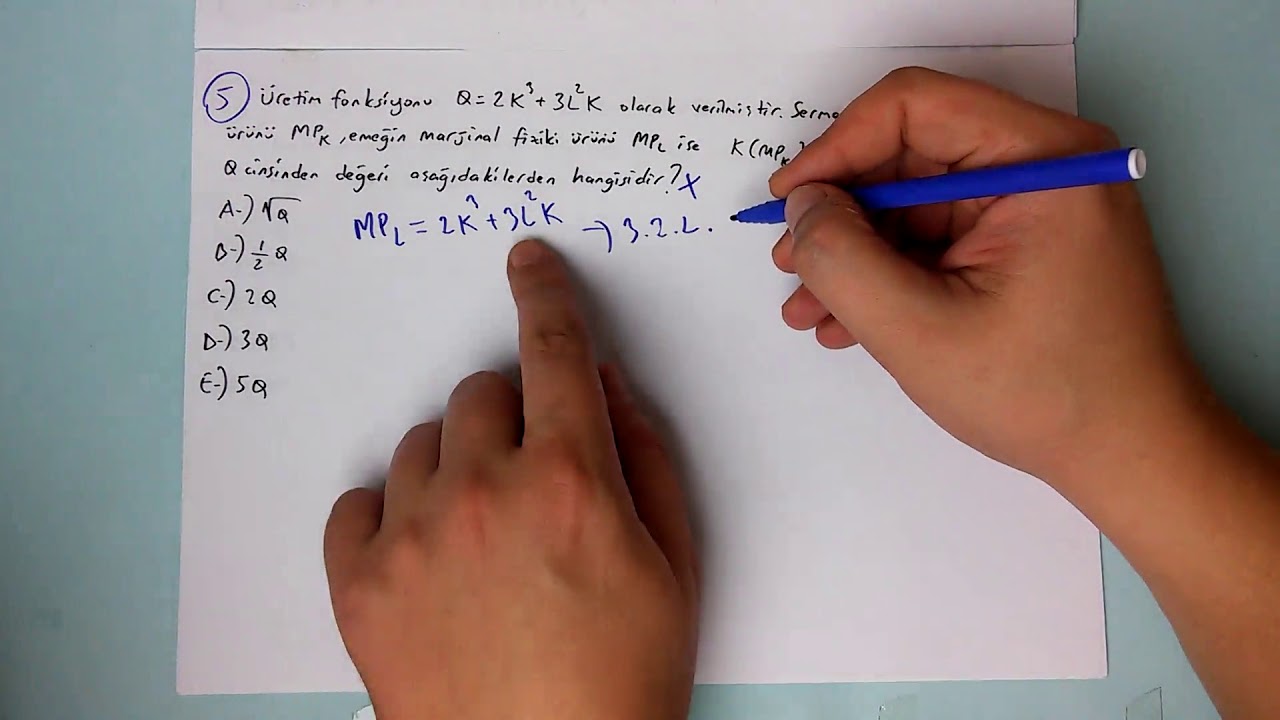 5 Üretim fonksiyonu Q = 2K³ + 3L²K olarak verilmiştir.
ürünü MPK, emeğin marjinal fiziki ürünü MPL ise K(MPK)
Q cinsinden değeri aşağıdakilerden hangisidir?
A-) √Q
MPL = 2K³ + 3L²K → 3.2.L.
B-) 1/2 Q
C-) 2Q
D-) 3Q
E-) 5Q